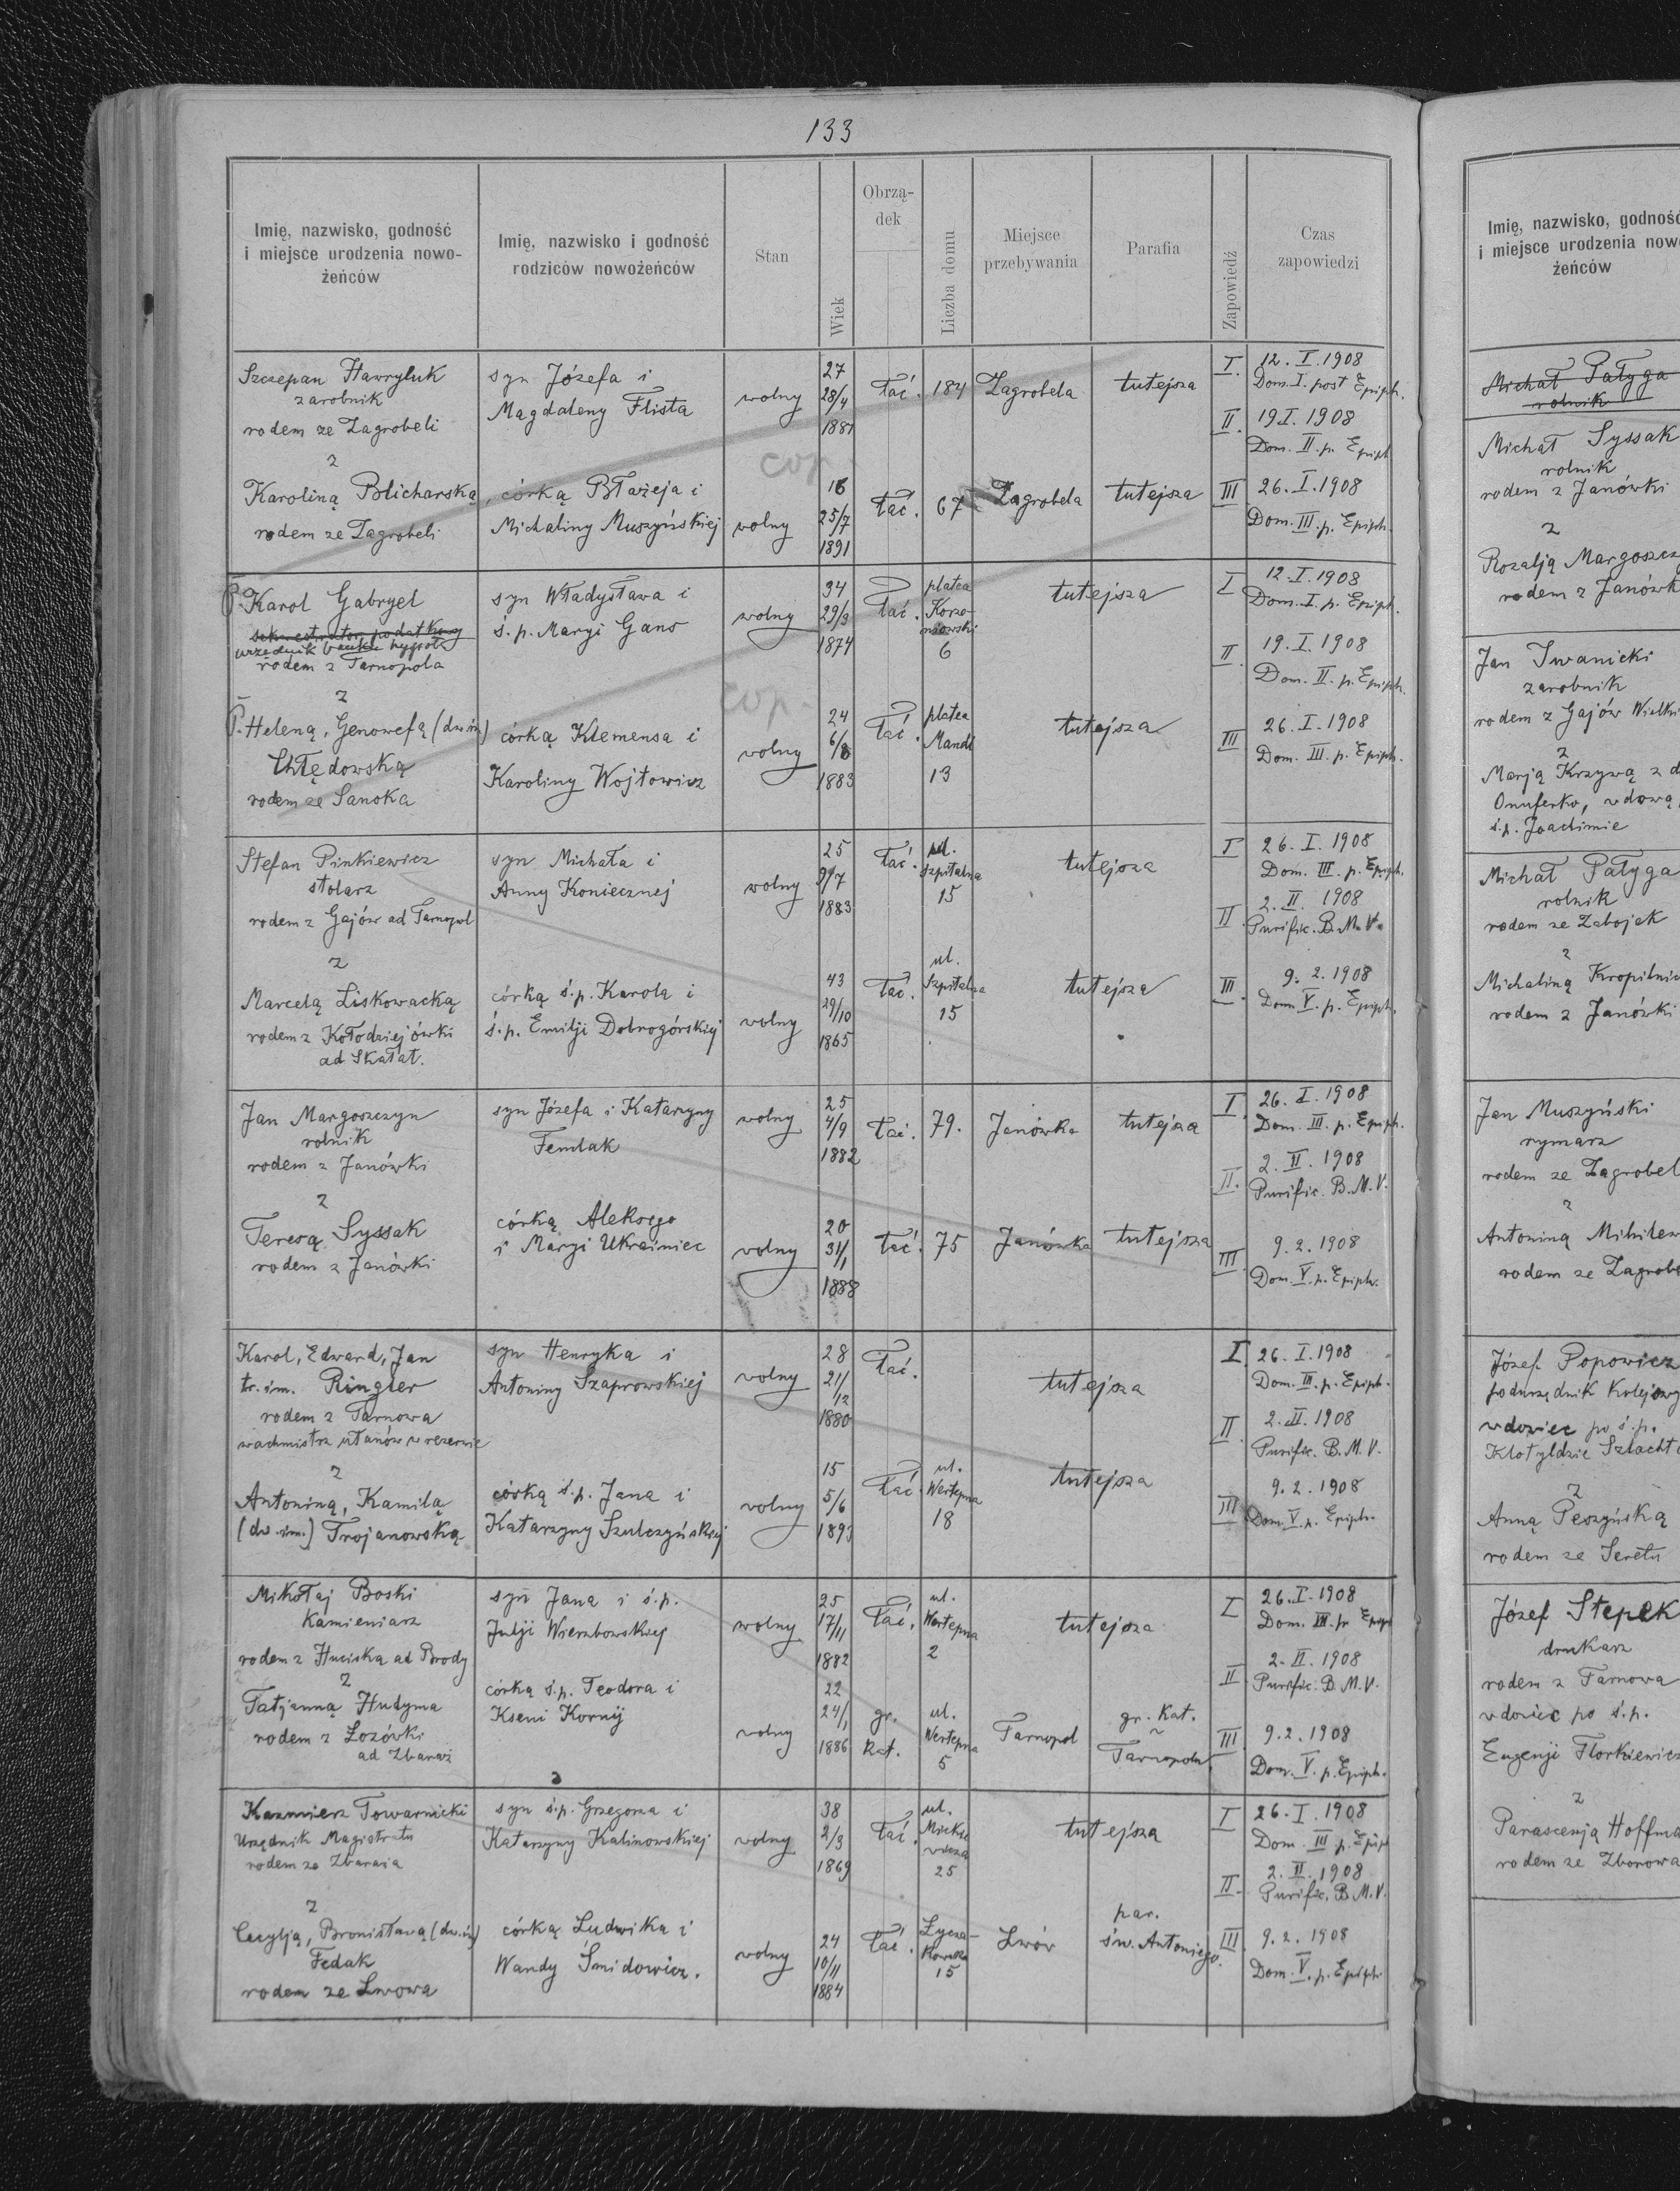 133
Imię, nazwisko, godność
i miejsce urodzenia nowo-
żeńców
Imię, nazwisko i godność
rodziców nowożeńców
Stan
Wiek
Obrzą-
dek
Liczba domu
Miejsce
przebywania
Parafia
Zapowiedź
Czas
zapowiedzi
Szczepan Hawryluk
zarobnik
rodem ze Zagrobeli
syn Józefa i
Magdaleny Flista
wolny
27
28/4
1881
łać.
184
Zagrobela
tutejsza
I.
12. I. 1908
Dom. I. post Epiph.
II.
19 I. 1908
Dom. II. p. Epiph
cop.
z
Karoliną Blicharską,
rodem ze Zagrobeli
córką Błażeja i
Michaliny Muszyńskiej
wolny
16
25/7
1891
łać.
67
Zagrobela
tutejsza
III
26. I. 1908
Dom. III. p. Epiph.
P. Karol Gabryel
sekwestrator podatkowy
urzędnik banku hypot.
rodem z Tarnopola
syn Władysława i
ś. p. Maryi Gans
wolny
34
29/3
1874
łać.
platea
Korze-
niowski
6
tutejsza
I
12. I. 1908
Dom. I. p. Epiph.
II.
19. I. 1908
Dom. II. p. Epiph.
cop.
z
P. Heleną, Genowefą (dw. im)
Chłędowską
rodem ze Sanoka
córką Klemensa i
Karoliny Wojtowicz
wolny
24
6/8
1883
łać.
platea
Mandl
13
tutejsza
III
26. I. 1908
Dom. III. p. Epiph.
Stefan Pinkiewicz
stolarz
rodem z Gajów ad Tarnopol
syn Michała i
Anny Koniecznej
wolny
25
9/7
1883
łać.
ul.
Szpitalna
15
tutejsza
I
26. I. 1908
Dom. III. p. Epiph.
II.
2. II. 1908
Purific. B. M. V.
z
Marcelą Liskowacką
rodem z Kołodziejówki
ad Skałat.
córką ś. p. Karola i
ś. p. Emilji Dobrogórskiej
wolny
43
29/10
1865
łać.
ul.
Szpitalna
15
tutejsza
III.
9. 2. 1908
Dom. V. p. Epiph.
Jan Margoszczyn
rolnik
rodem z Janówki
syn Józefa i Katarzyny
Femlak
wolny
25
4/9
1882
łać.
79.
Janówka
tutejsza
I
26. I. 1908
Dom. III. p. Epiph.
II.
2. II. 1908
Purific. B. M. V.
z
Teresą Syssak
rodem z Janówki
córką Aleksego
i Maryi Ukrainiec
wolny
20
31/1
1888
łać.
75
Janówka
tutejsza
III.
9. 2. 1908
Dom. V. p. Epiph.
Karol, Edward, Jan
tr. im. Ringler
rodem z Tarnowa
wachmistrz ułanów w rezerwie
syn Henryka i
Antoniny Szaprowskiej
wolny
28
21/12
1880
łać.
tutejsza
I
26. I. 1908
Dom. III. p. Epiph.
II
2. II. 1908
Purific. B. M. V.
z
Antoniną, Kamilą
(dw. im.) Trojanowską
córką ś. p. Jana i
Katarzyny Szulczyńskiej
wolny
15
5/6
1893
łać.
ul.
Wertepna
18
tutejsza
III
9. 2. 1908
Dom. V. p. Epiph.
Mikołaj Boski
Kamieniarz
rodem z Huciska ad Brody
syn Jana i ś. p.
Julji Wierzbowskiej
wolny
25
17/11
1882
łać.
ul.
Wertepna
2
tutejsza
I
26. I. 1908
Dom. III. p. Epiph
II
2. II. 1908
Purific. B. M. V.
z
Tatjanną Hudyma
rodem z Łozówki
ad Zbaraż
córką ś. p. Teodora i
Kseni Kornij
wolny
22
24/1
1886
gr.
kat.
ul.
Wertepna
5
Tarnopol
gr. Kat.
w
Tarnopolu
III
9. 2. 1908
Dom. V. p. Epiph.
Kazmierz Towarnicki
Urzędnik Magistratu
rodem ze Zbaraża
syn ś. p. Grzegorza i
Katarzyny Kalinowskiej
wolny
38
2/3
1869
łać.
ul.
Mickie
wicza
25
tutejsza
I
26. I. 1908
Dom. III. p. Epiph
II.
2. II. 1908
Purific. B. M. V.
z
Cecylją, Bronisławą (dw. im)
Fedak
rodem ze Lwowa
córką Ludwika i
Wandy Śmidowicz.
wolny
24
10/11
1884
łać.
Łycza-
kowska
15
Lwów
par.
św. Antoniego.
III
9. 2. 1908
Dom. V. p. Epiph.
Imię, nazwisko, godność
i miejsce urodzenia nowo
żeńców
Michał Pałyga
rolnik
Michał Syssak
rolnik
rodem z Janówki
z
Rozalją Margoszcz
rodem z Janówk
Jan Iwanicki
zarobnik
rodem z Gajów Wielki
z
Marją Krzywą z d
Onuferko, wdową
ś. p. Joachimie
Michał Pałyga
rolnik
rodem ze Zabojek
z
Michaliną Kropilnic
rodem z Janówki
Jan Muszyński
rymarz
rodem ze Zagrobel
z
Antoniną
rodem ze Zagrobe
Józef Popowicz
podurzędnik kolejowy
wdowiec po ś. p.
Klotyldzie Szlacht
z
Anną Peszyńską
rodem ze Seretu
Józef Stepek
drukarz
rodem z Tarnowa
wdowiec po ś. p.
Eugenji Florkiewicz
z
Parascenją Hoffma
rodem ze Zborowa